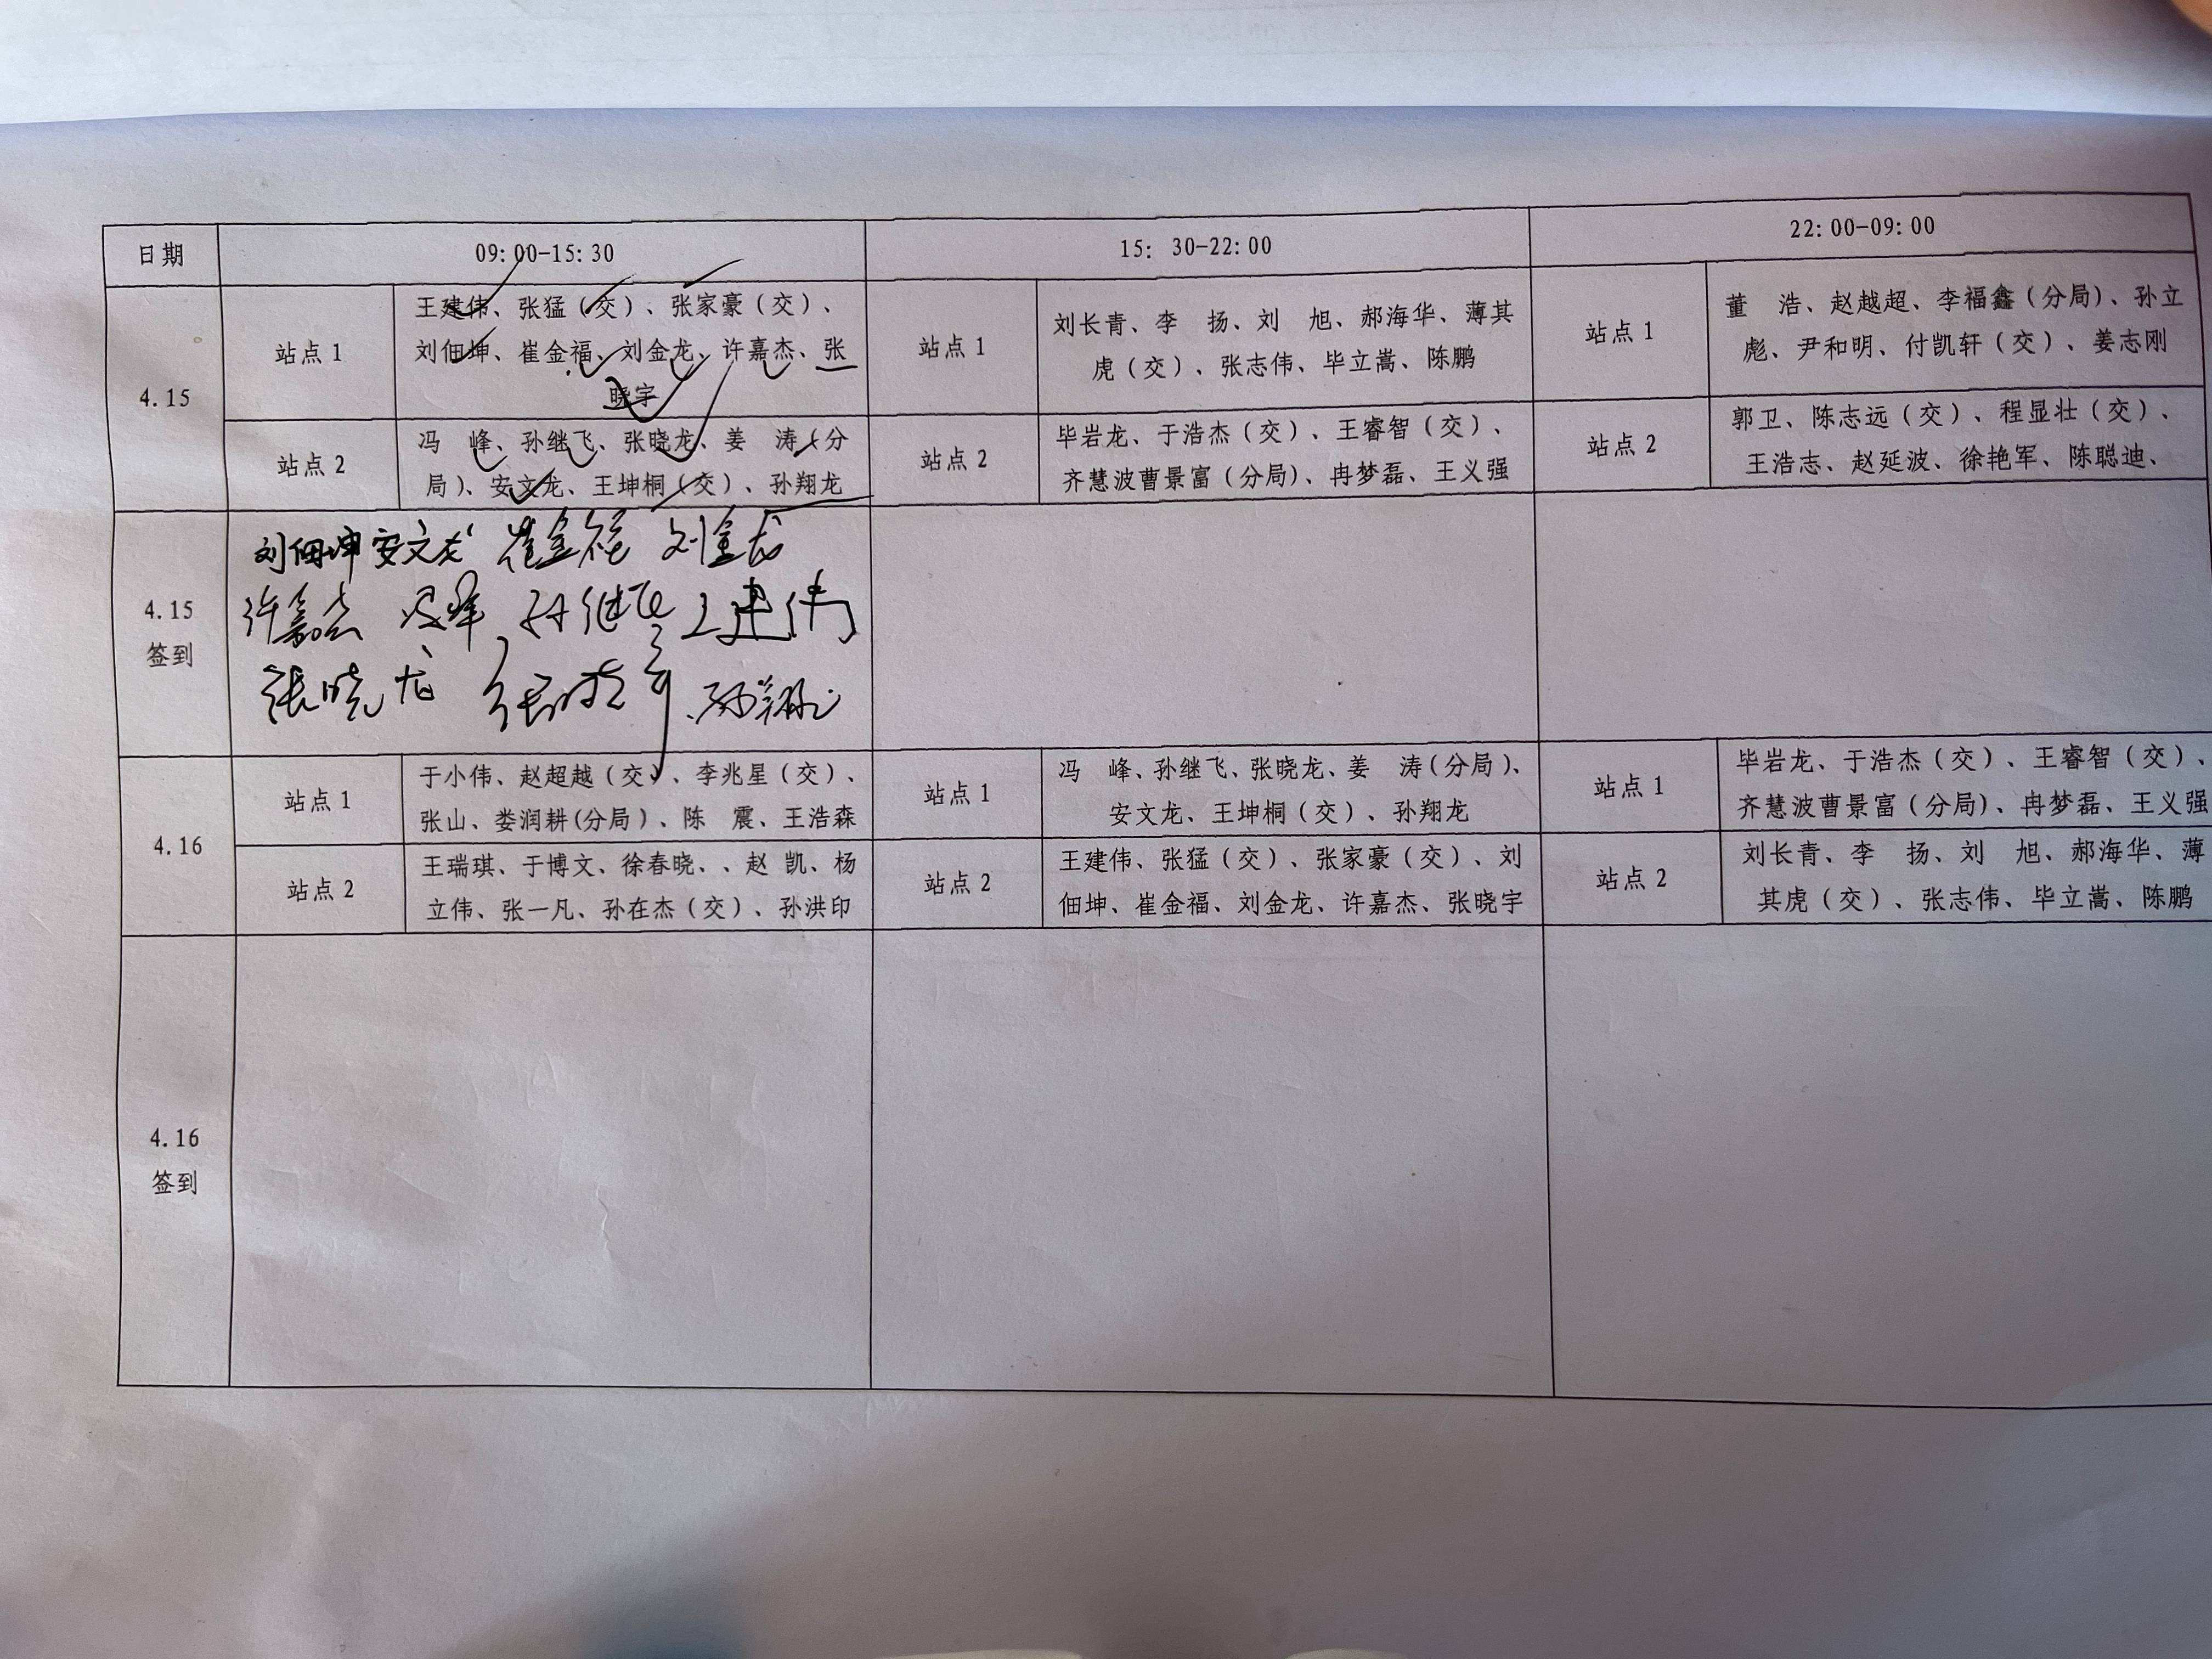 日期 09:00-15:30 15: 30-22:00 22:00-09:00
4.15
站点1
王建伟、张猛（交）、张家豪（交）、
刘佃坤、崔金福、刘金龙、许嘉杰、张
晓宇
站点1
刘长青、李　扬、刘　旭、郝海华、薄其
虎（交）、张志伟、毕立嵩、陈鹏
站点1
董　浩、赵越超、李福鑫（分局）、孙立
彪、尹和明、付凯轩（交）、姜志刚
站点2
冯　峰、孙继飞、张晓龙、姜　涛（分
局）、安文龙、王坤桐（交）、孙翔龙
站点2
毕岩龙、于浩杰（交）、王睿智（交）、
齐慧波曹景富（分局）、冉梦磊、王义强
站点2
郭卫、陈志远（交）、程显壮（交）、
王浩志、赵延波、徐艳军、陈聪迪、
4.15
签到
刘佃坤 安文龙 崔金福 刘金龙
许嘉杰 冯峰 孙继飞 王建伟
张晓龙 张晓宇 孙翔龙
4.16
站点1
于小伟、赵超越（交）、李兆星（交）、
张山、娄润耕(分局）、陈　震、王浩森
站点1
冯　峰、孙继飞、张晓龙、姜　涛(分局）、
安文龙、王坤桐（交）、孙翔龙
站点1
毕岩龙、于浩杰（交）、王睿智（交）、
齐慧波曹景富（分局）、冉梦磊、王义强
站点2
王瑞琪、于博文、徐春晓、、赵 凯、杨
立伟、张一凡、孙在杰（交）、孙洪印
站点2
王建伟、张猛（交）、张家豪（交）、刘
佃坤、崔金福、刘金龙、许嘉杰、张晓宇
站点2
刘长青、李　扬、刘　旭、郝海华、薄
其虎（交）、张志伟、毕立嵩、陈鹏
4.16
签到